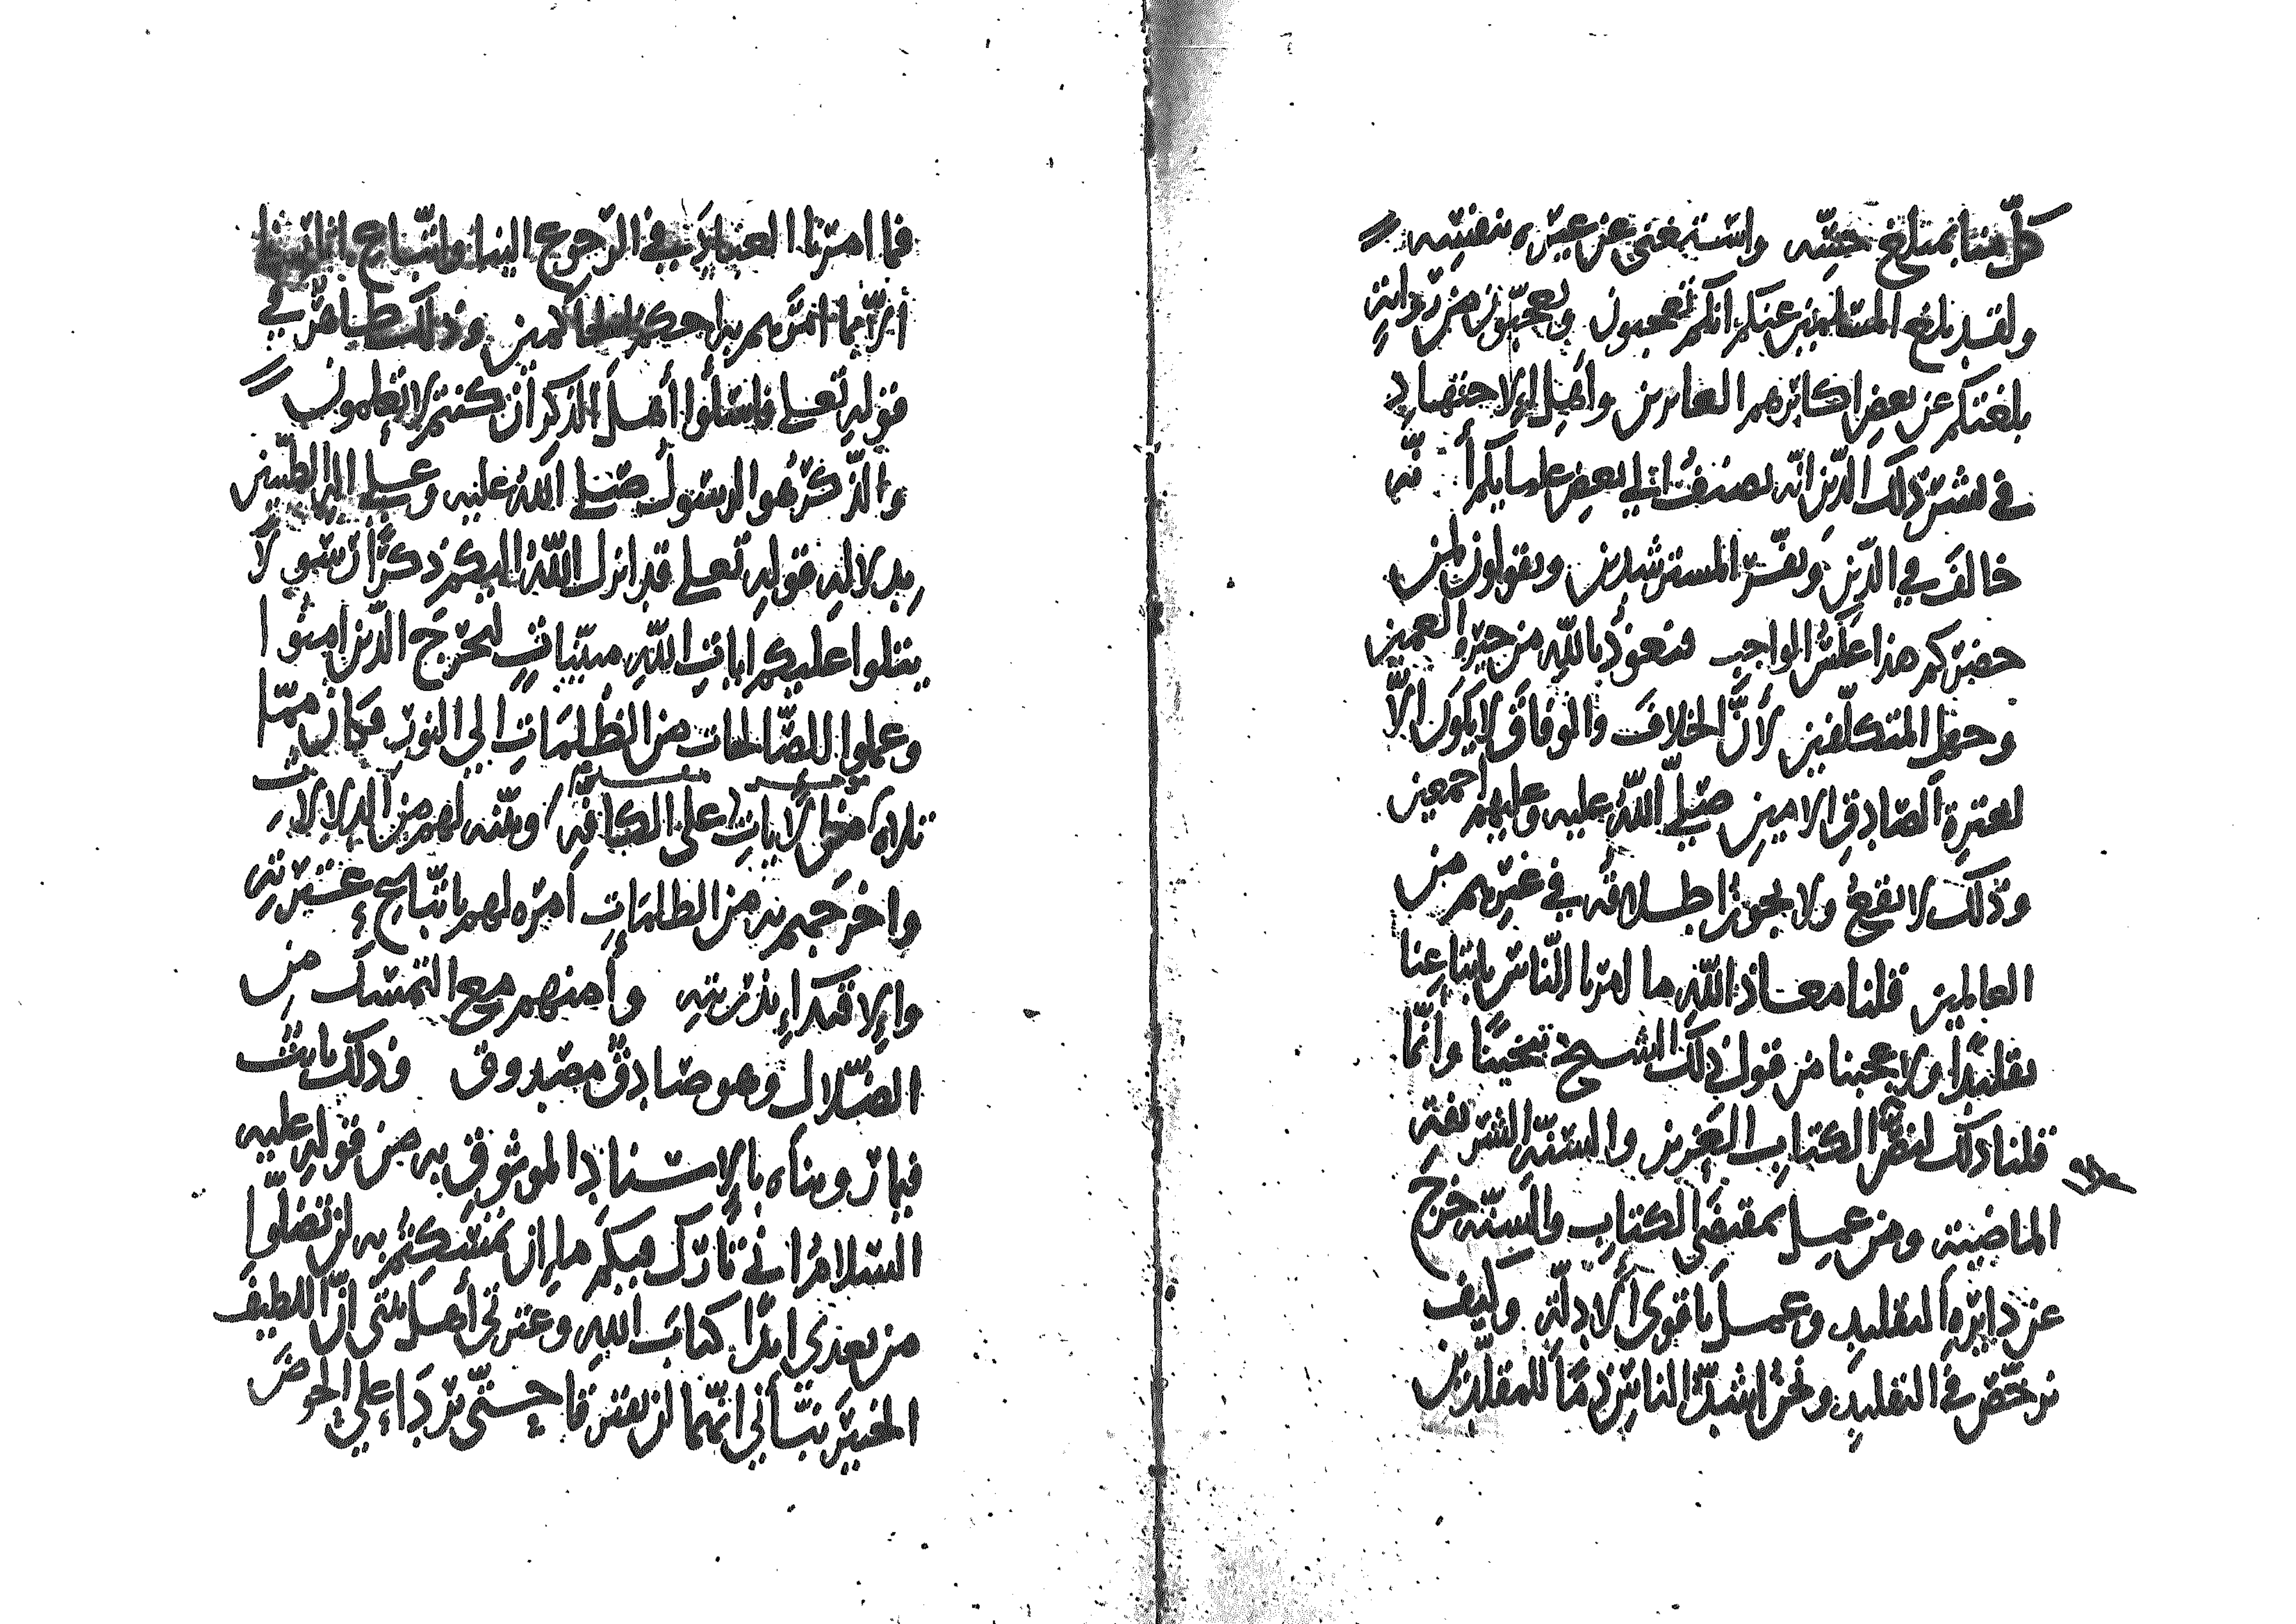 كلّ منا بمبلغ حيّته واستغنى عن غيره بنفسه
ولقد بلغ المسلمين عنكم انكم تعجبون وتعجّبون من روايةٍ
بلغتكم عن بعض اكابرهم العابرين واهل الاجتهاد
في نشر ذلك الدّين انّه يصنف الى بعض علمايكم أنّه
خالف في الدّين ونفّر المسترشدين ويقولون لمن
حضركم هذا عكس الواجب فنعوذ بالله من حيرة العمين
وجهل المتكلّفين لأنّ الخلاف والوفاق لا يكون الاّ
لعترة الصّادق الامين صلّى اللّه عليه وعليهم اجمعين
وذلك لا يقع ولا يجوز اطلاقه في غيرهم من
العالمين قلنا معاذ اللّه ما امرنا النّاس باتباعنا
تقليدًا ولا يعجبنا من قول ذلك الشيخ تنحيبًا وانّما
قلنا ذلك لنصّ الكتاب العزيز والسّنّة الشريفة
الماضية ومن عمل بمقتضى الكتاب والسّنّة خرج
عن دايرة التقليد وعمل باقوى الأدلّة وكيف
نرخّص في التقليد ونحن اشدّ الناس ذمّا للمقلّدين
فما امرنا العباد في الرّجوع الينا واتّباع اثارنا
الاّ بما امرهم به احكم الحاكمين وذلك ظاهرٌ في
قوله تعلى فاسئلوا أهل الذكر ان كنتم لا تعلمون
والذّكر هو الرسول صلى اللّه عليه وعلى اله الطيّبين
بدلالة قوله تعلى قد انزل اللّه اليكم ذكرًا رسولًا
يتلوا عليكم ايات اللّه مبيّنات لخرج الّذين امنوا
وعملوا الصّالحات من الظلمات الى النور فكان ممّا
تلاه من الايات على الكافّة وبيّنه لهم من الدلالات
واخرجهم به من الظلمات امره لهم باتّباع عترته
والاقتداء بذريته وأمنهم مع التمسّك من
الضّلال وهو صادقٌ مصدوق وذلك ثابت
فيما رويناه بالإسناد الموثوق به من قوله عليه
السّلام انى تارك فيكم ما ان تمسّكتم به لن تضلّوا
من بعدي ابدًا كتاب الله وعترتي أهل بيتى انّ اللطيف
الخبير نبّأني انّهما لن يفترقا حتّى يردا على الحوض